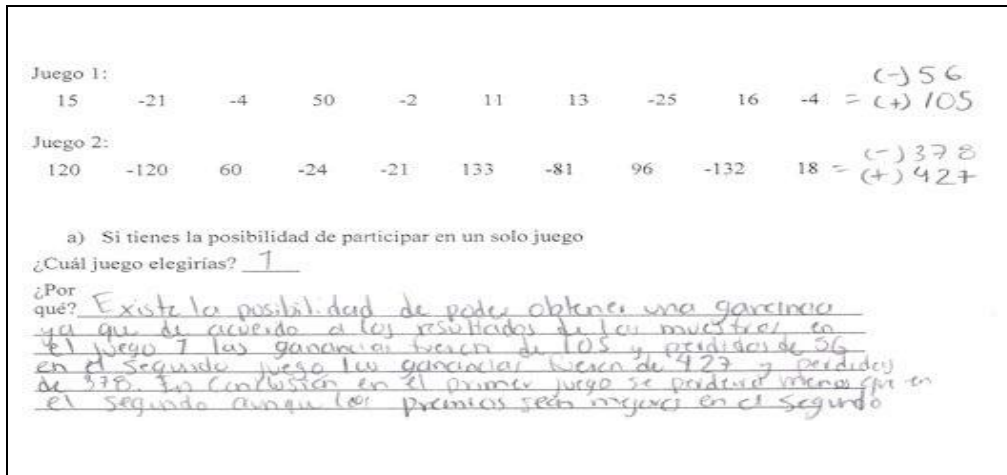 Juego 1:
(-) 56
15 -21 -4 50 -2 11 13 -25 16 -4 = (+) 105
Juego 2:
(-) 378
120 -120 60 -24 -21 133 -81 96 -132 18 = (+) 427
a) Si tienes la posibilidad de participar en un solo juego
¿Cuál juego elegirías? 1
¿Por
qué? Existe la posibilidad de poder obtener una ganancia
ya que de acuerdo a los resultados de las muestras en
el juego 1 las ganancias fueron de 105 y perdidas de 56
en el segundo juego las ganancias fueron de 427 y perdidas
de 378. En conclusión en el primer juego se perdera menos que en
el segundo aunque los premios sean mejores en el segundo